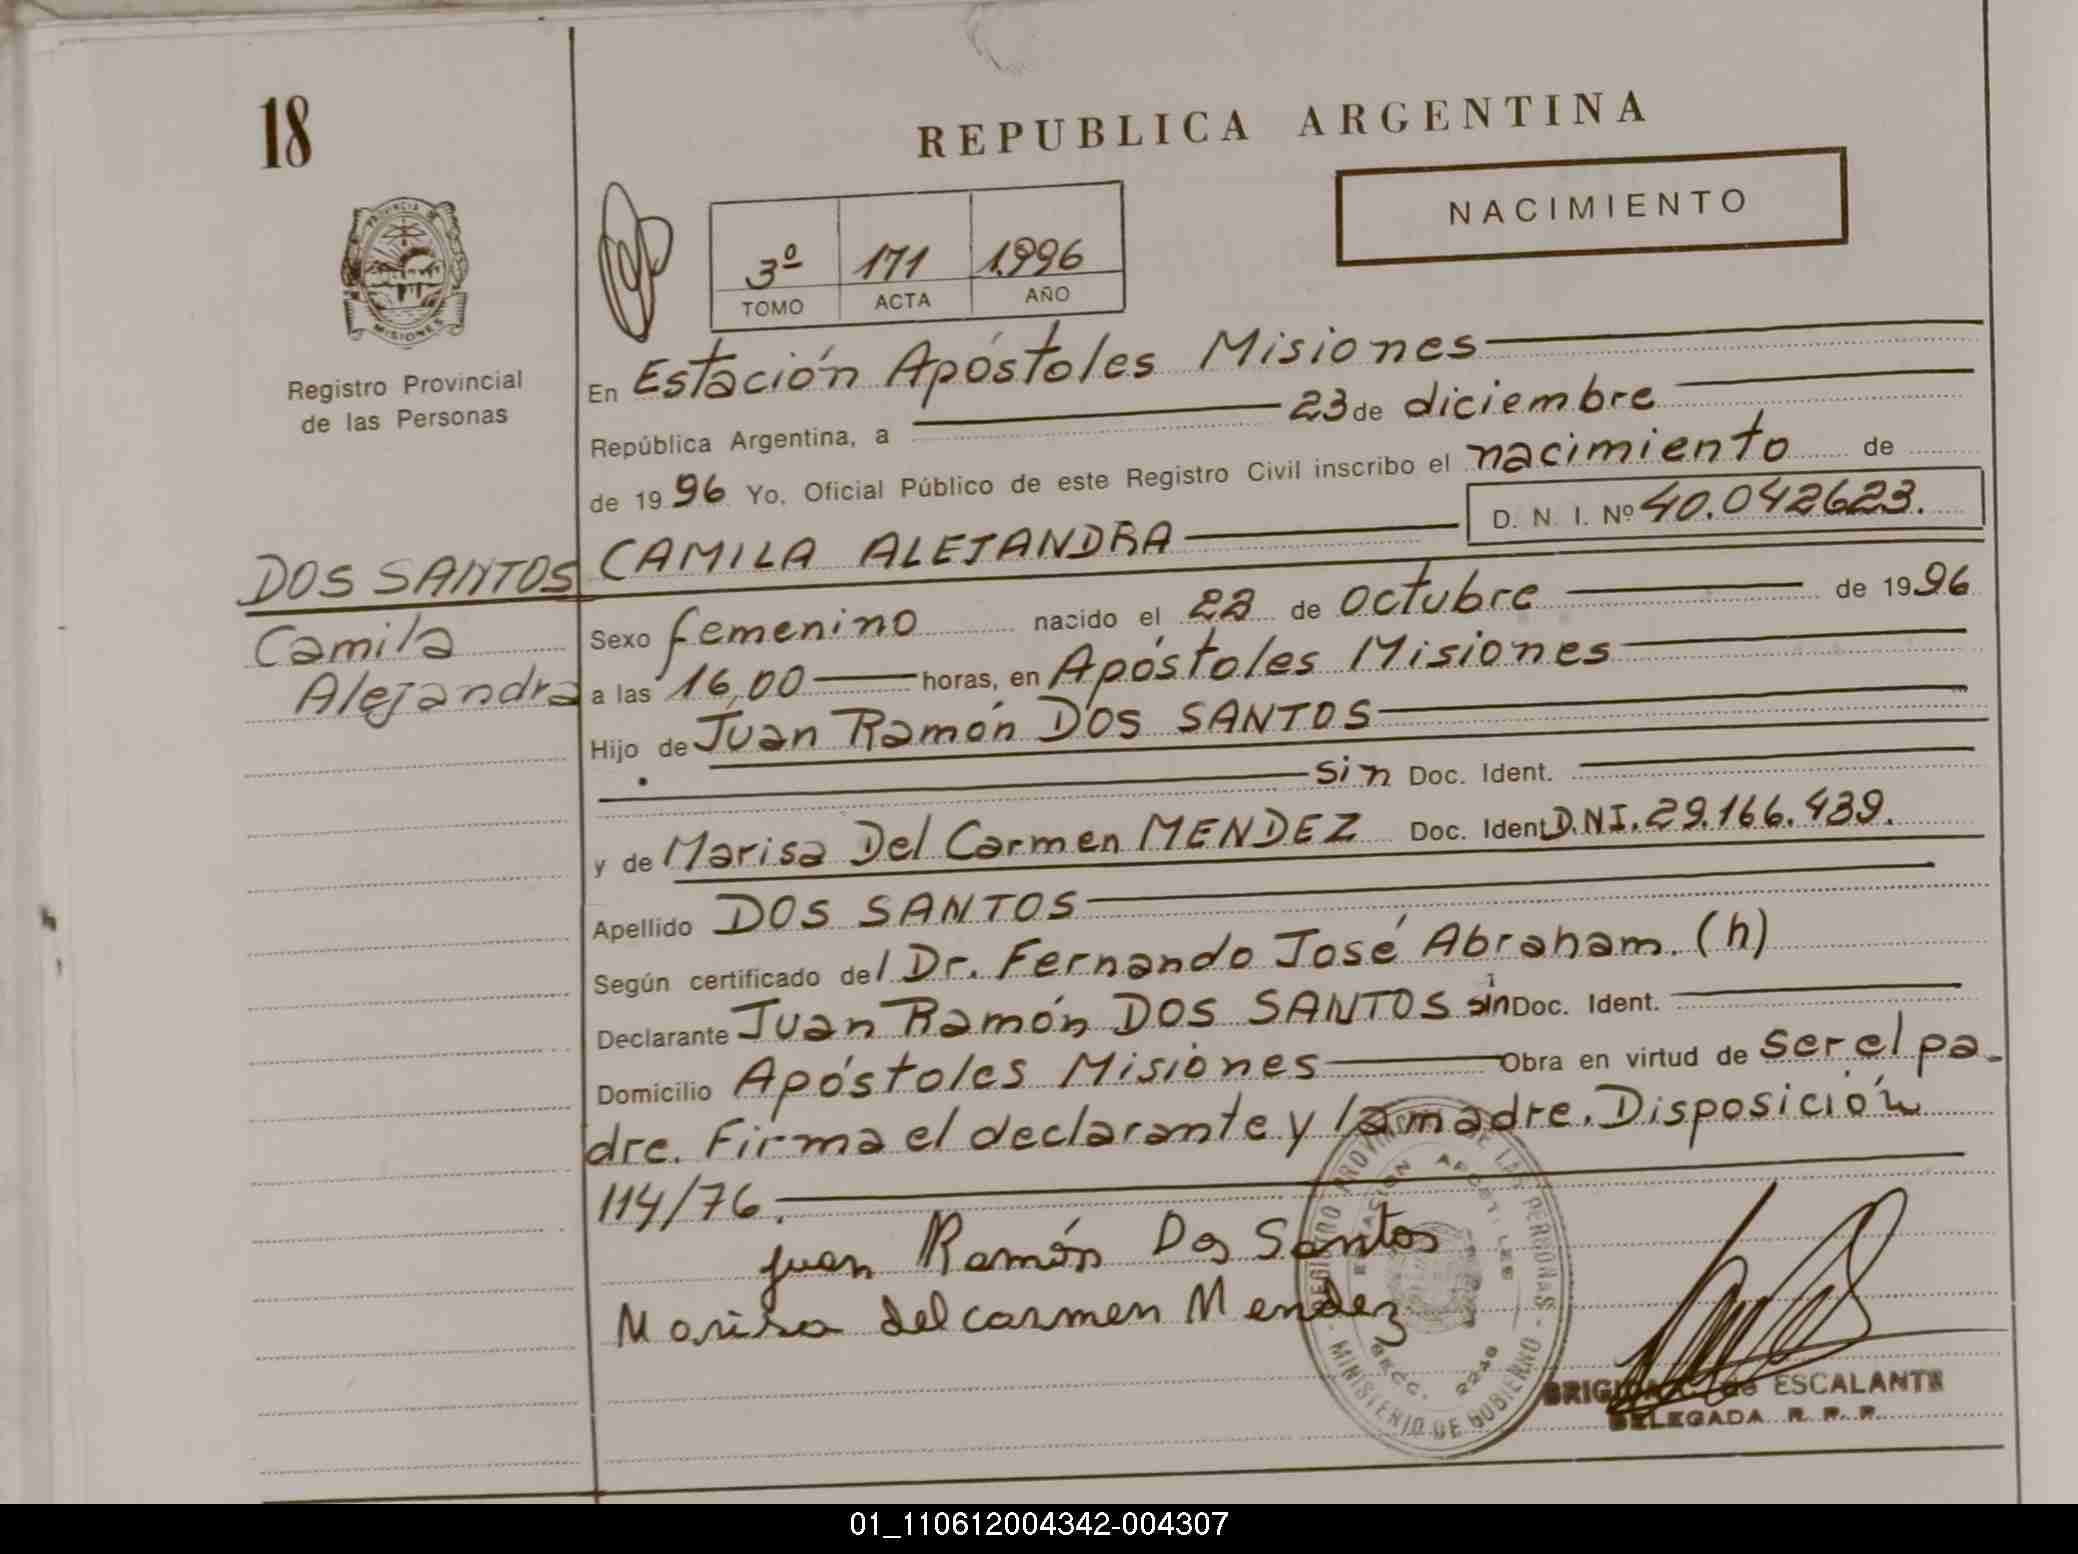 18
REPUBLICA ARGENTINA
NACIMIENTO
3º 171 1996
TOMO ACTA AÑO
PROVINCIA DE
MISIONES
Registro Provincial
de las Personas
En Estación Apóstoles Misiones
República Argentina, a 23 de diciembre
de 1996 Yo, Oficial Público de este Registro Civil inscribo el nacimiento de
D. N. I. Nº 40.042623.
DOS SANTOS CAMILA ALEJANDRA
Camila
Alejandra
Sexo femenino nacido el 22 de octubre de 1996
a las 16,00 horas, en Apóstoles Misiones
Hijo de Juan Ramón DOS SANTOS
sin Doc. Ident.
y de Marisa Del Carmen MENDEZ Doc. Ident D.NI. 29.166.439.
Apellido DOS SANTOS
Según certificado del Dr. Fernando José Abraham. (h)
Declarante Juan Ramón DOS SANTOS sin Doc. Ident.
Domicilio Apóstoles Misiones Obra en virtud de ser el pa-
dre. Firma el declarante y la madre. Disposición
114/76.
Juan Ramón Dos Santos
Marisa del carmen Mendez
REGISTRO PROVINCIAL DE LAS PERSONAS - MINISTERIO DE GOBIERNO -
ESTACION APOSTOLES
SECC. 2248
de ESCALANTE
DELEGADA R. P. P.
01_110612004342-004307